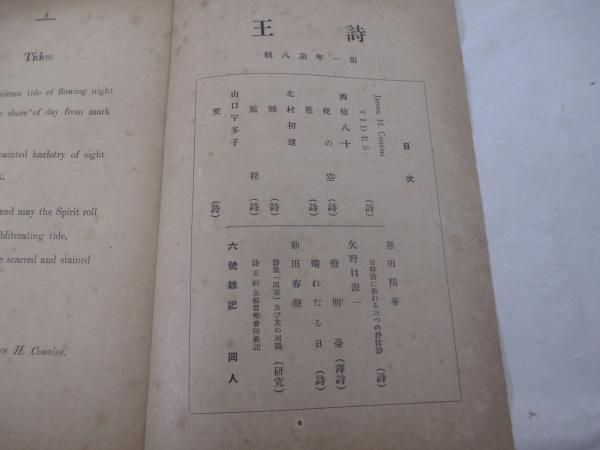 3
Tides
olemn tide of flowing night
e shore of day from mark
ainted harlotry of sight
end may the Spirit roll
bliterating tide,
e scarred and stained
es H. Cousins.
詩王
第一年第八輯
目次
James H. Cousins
TIDES (詩)
西條八十
夜の空 (詩)
墓 (詩)
北村初雄
(詩)
旅程 (詩)
山口宇多子
愛 (詩)
熊田精華
日時計に依れる三つの抒情詩 (詩)
矢野目源一
燈明臺 (譯詩)
晴れたる日 (詩)
前田春聲
及び其の周圍 (研究)
詩王社主催音樂會印象記
六號雜記 同人